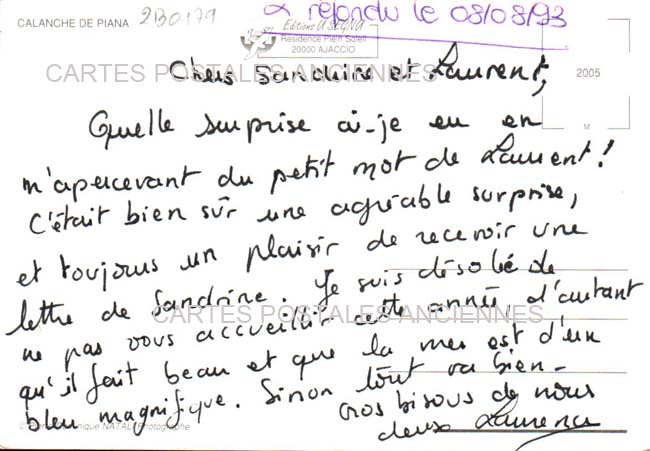 CALANCHE DE PIANA
2B0179
répondu le 08/08/93
Editions U SEGNU
Résidence Plein Soleil
20000 AJACCIO
CARTES POSTALES ANCIENNES
2005
M
Chers Sandrine et Laurent,
Quelle surprise ai-je eu en
m'apercevant du petit mot de Laurent!
C'était bien sûr une agréable surprise,
et toujours un plaisir de recevoir une
lettre de Sandrine. Je suis désolée de
ne pas vous accueillir cette année, d'autant
CARTES POSTALES ANCIENNES
qu'il fait beau et que la mer est d'un
bleu magnifique. Sinon tout va bien-
Gros bisous de nous
deux Laurence
NATALI Photographe